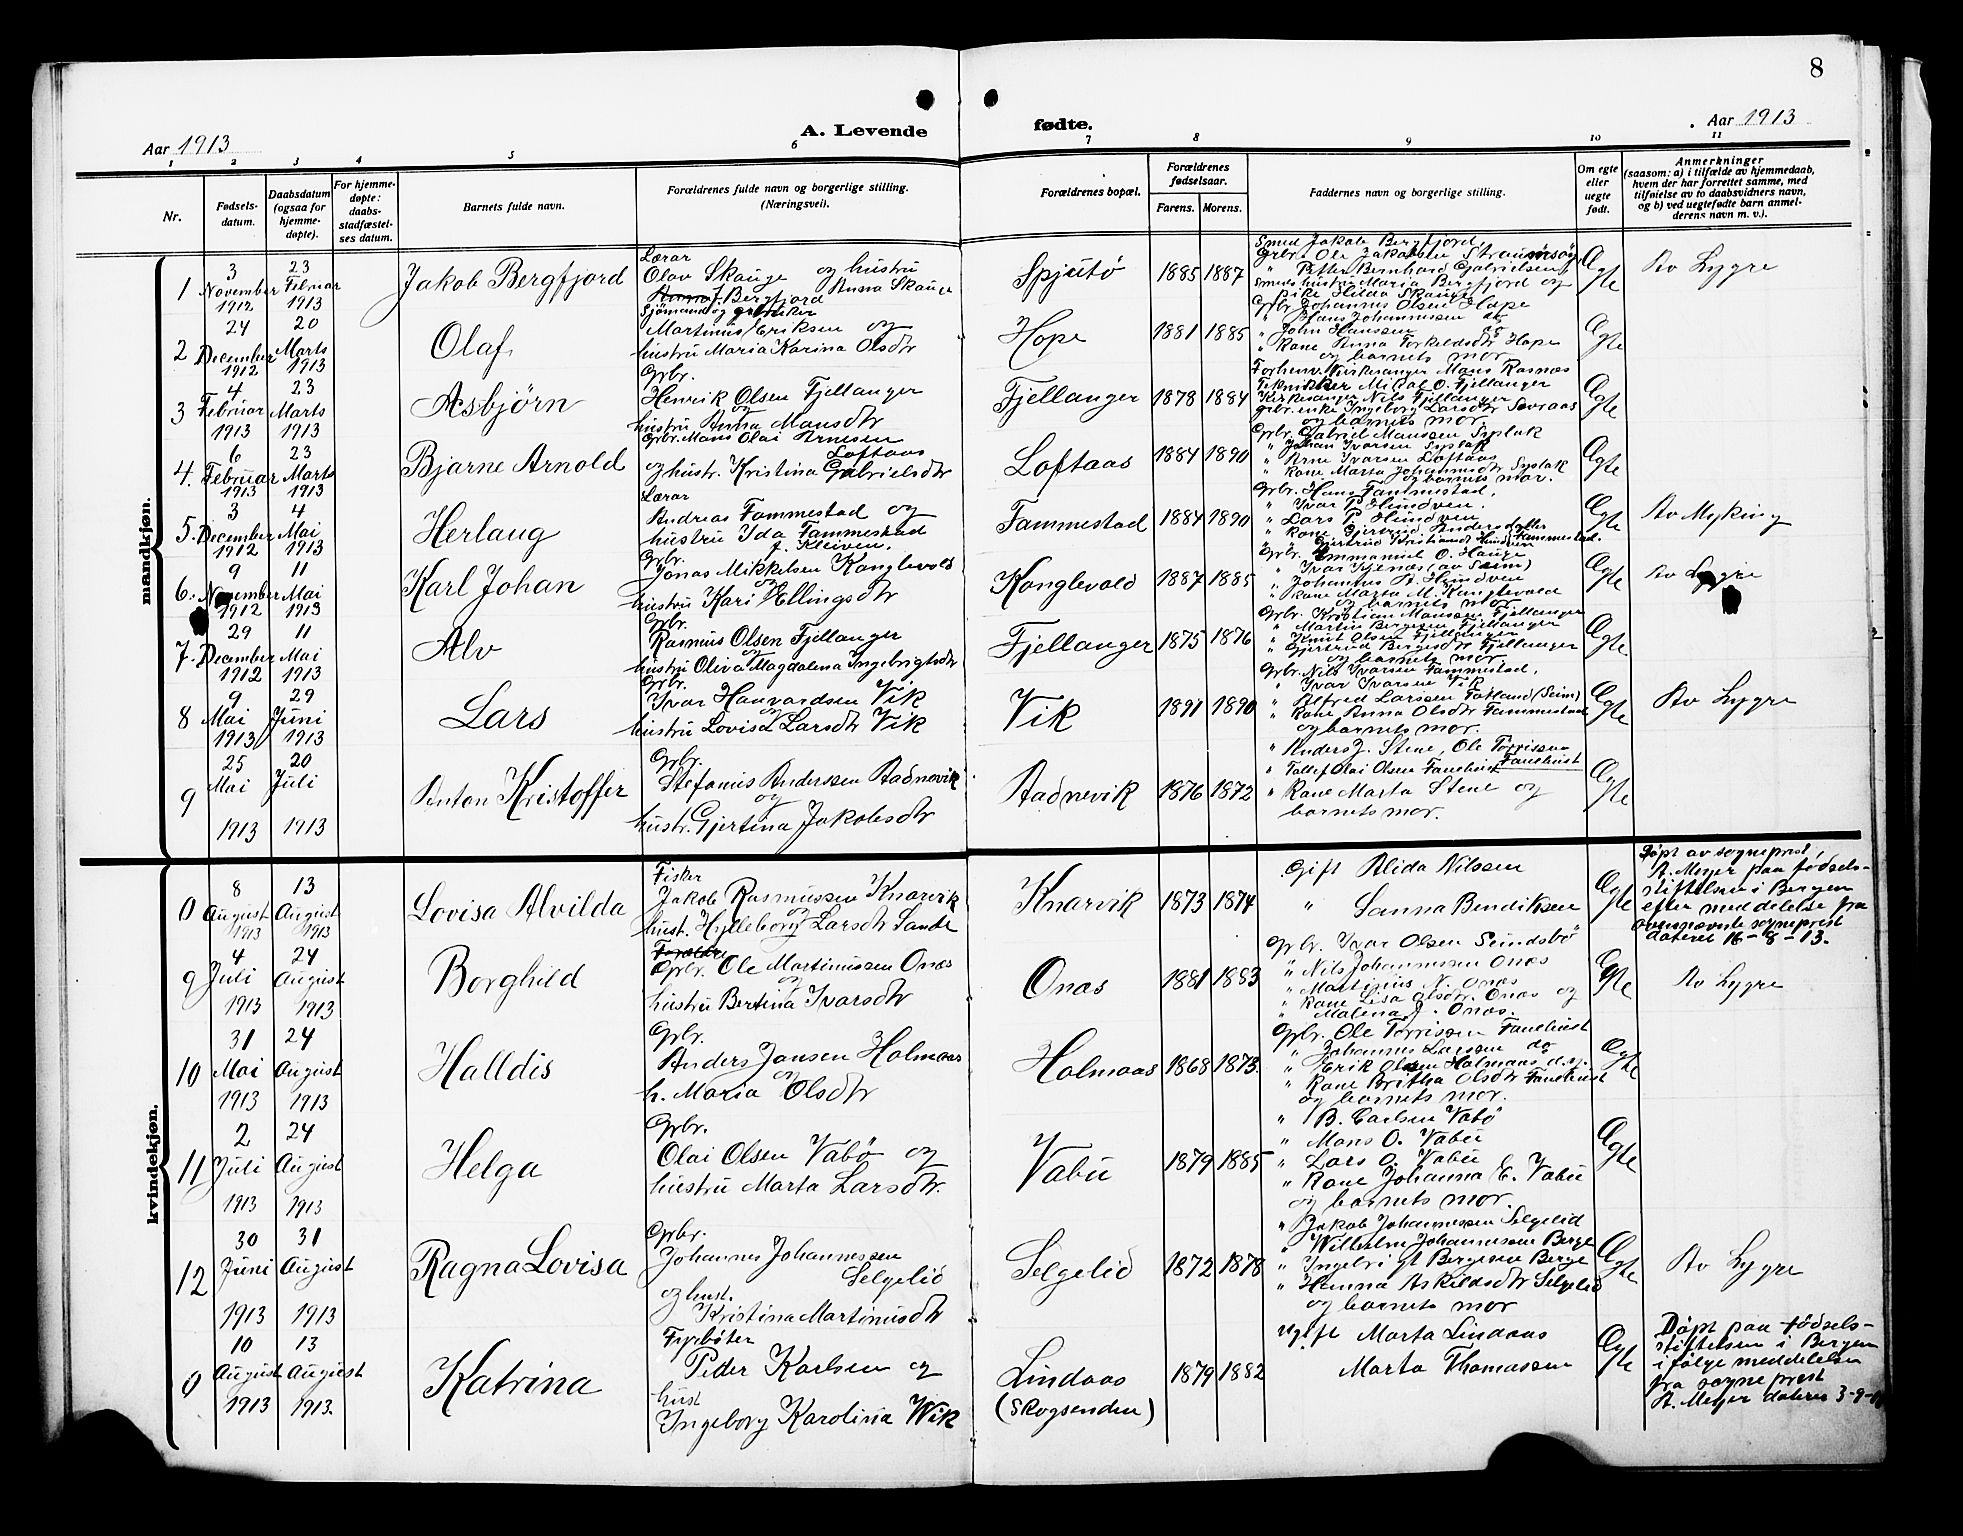 8
A. Levende fødte.
Aar 1913
Aar 1913
1 2 3 4 5 6 7 8 9 10 11
Nr.
Fødsels-
datum.
Daabsdatum
(ogsaa for
hjemme-
døpte).
For hjemme-
døpte:
daabs-
stadfæstel-
ses datum.
Barnets fulde navn.
Forældrenes fulde navn og borgerlige stilling.
(Næringsvei).
Forældrenes bopæl.
Forældrenes
fødselsaar.
Farens. Morens.
Faddernes navn og borgerlige stilling.
Om egte
eller
uegte
født.
Anmerkninger
(saasom: a) i tilfælde av hjemmedaab,
hvem der har forrettet samme, med
tilføielse av to daabsvidners navn,
og b) ved uegtefødte barn anmel-
derens navn m. v.).
mandkjøn.
1
3
November
1912
23
Februar
1913
Jakob Bergfjord
Lærar
Olav Skauge og hustru
Anna J. Bergfjord Anna Skauge
Spjutö
1885 1887
Smed Jakob Bergfjord,
Grbr. Ole Jakobsen Straumsøy
" Petter Bernhard Gabrielsen
Smeds hustru Maria Bergfjord og
pike Hilda Skauge
Ægte
Av Lygre
2
24
December
1912
20
Marts
1913
Olaf
Sjömand og gbruker
Martinus Eriksen og
hustru Maria Karina Olsdtr
Hope
1881 1885
Grbr. Johannes Olsen Hope
" Hans Johannessen do
" John Hanssen do
" Kone Anna Torkildsdtr Hope
og barnets mor.
Ægte
3
4
Februar
1913
23
Marts
1913
Asbjörn
Grbr.
Henrik Olsen Fjellanger
og
hustru Anna Mansdtr
Fjellanger
1878 1884
Forhenv. Kirkesanger Mans Rasnes
Tekniker Mikal O. Fjellanger
Kirkesanger Nils Fjellanger
grbr. enke Ingeborg Larsdtr Sævraas
og barnets mor.
Ægte
4.
6
Februar
1913
23
Marts
1913
Bjarne Arnold
Grbr. Mans Olai Arnesen
Loftaas
og hustr. Kristina Gabrielsdtr
Loftaas
1884 1890
Grbr. Gabriel Manssen Syslak
" Johan Ivarsen Syslak
" Arne Ivarsen Loftaas
" Kone Marta Johannesdtr Syslak
og barnets mor.
Ægte
5.
3
December
1912
4
Mai
1913
Herlaug
Lærar
Andreas Fammestad og
hustru Ida Fammestad
f. Kleiven.
Fammestad
1884 1890
Grbr. Hans Fammestad,
" Ivar P. Hundven
" Lars P. Hundven
" Kone Gjertrud Andersdatter
Ægte
Av Myking
6.
9
November
1912
11
Mai
1913
Karl Johan
Grbr.
Jonas Mikkelsen Konglevold
og
hustru Kari Ellingsdtr
Konglevold
1887 1885
Grbr. Emmanuel O. Hauge
" Ivar Kjenes (av Seim)
" Johannes A. Hundven
" Kone Marta M. Konglevold
og barnets mor
Ægte
Av Lygre
7.
29
December
1912
11
Mai
1913
Alv
Grbr.
Rasmus Olsen Fjellanger
og
hustru Oliva Magdalena Ingebrigtsdtr
Fjellanger
1875 1876
Grbr. Kristian Mansen Fjellanger
" Martin Bergesen Fjellanger
" Knut Olsen Fjellanger
" Gjertrud Bergesdtr Fjellanger
og barnets mor
Ægte
8
9
Mai
1913
29
Juni
1913
Lars
Grbr.
Ivar Havardsen Vik
og
hustru Lovisa Larsdtr Vik
Vik
1891 1890
Grbr. Nils Ivarsen Fammestad,
" Ivar Ivarsen Vik
" Alfred Larssen Fatland (Seim)
" Kone Anna Olsdtr Fammestad
og barnets mor.
Ægte
Av Lygre
9
25
Mai
1913
20
Juli
1913
Anton Kristoffer
Grbr.
Stefanus Anderssen Aadnevik
og
hustr. Gjertina Jakobsdtr
Aadnevik
1876 1872
" Anders J. Stene, Ole Torrissen
Fanebust
" Tollef Olai Olsen Fanebust
" Kone Marta Stene og
barnets mor.
Ægte
kvindekjøn.
0
8
August
1913
13
August
1913
Lovisa Alvilda
Fisker
Jakob Rasmussen Knarvik
og
hust. Hylleborg Larsdtr Sande
Knarvik
1873 1874
Gift Alida Nilssen
" Sanna Bendiksen
Ægte
Døpt av sogneprest,
A. Meyer paa fødsels-
stiftelsen i Bergen
efter meddelelse fra
ovennævnte sogneprest
dateret 16-8-13.
9
4
Juli
1913
24
August
1913
Borghild
Forældre
Grbr. Ole Martinussen Onas
og
hustru Bertina Ivarsdtr
Onas
1881 1883
Grbr. Ivar Olsen Sundsbö
" Nils Johannessen Onas
" Martinus N. Onas
" Kone Lisa Olsdtr. Onas og
" Malena J. Onas.
Ægte
Av Lygre
10
31
Mai
1913
24
August
1913
Halldis
Grbr.
Anders Jansen Holmaas
og
h. Maria Olsdtr
Holmaas
1868 1873
Grbr. Ole Torrissen Fanebust
" Johannes Larssen do
" Erik Olsen Holmaas d.y.
" Kone Britha Olsdtr Fanebust
og barnets mor.
Ægte
11
2
Juli
1913
24
August
1913
Helga
Grbr.
Olai Olsen Vabö og
hustru Marta Larsdtr.
Vabu
1879 1885
" B. Carlsen Vabö
" Mons O. Vabu
" Lars O. Vabu
" Kone Johanna E. Vabu
og barnets mor.
Ægte
12
30
Juni
1913
31
August
1913
Ragna Lovisa
Grbr.
Johannes Johannessen
Selgelid
og hust.
Kristina Martinusdtr
Selgelid
1872 1878
" Jakob Johannessen Selgelid
" Wilhelm Johannessen Berge
" Ingebrigt Bergesen Berge
" Hanna Askildsdtr Selgelid
og barnets mor
Ægte
Av Lygre
0
10
August
1913
13
August
1913.
Katrina
Fyrbøter
Peder Karlsen og
hust
Ingeborg Karolina Wik
Lindaas
(Skogsenden)
1879 1882
Ugift Marta Lindaas
Marta Thomassen
Ægte
Døpt paa fødsels-
stiftelsen i Bergen
ifölge meddelelse
fra sogneprest
A. Meyer dateret 3-9-